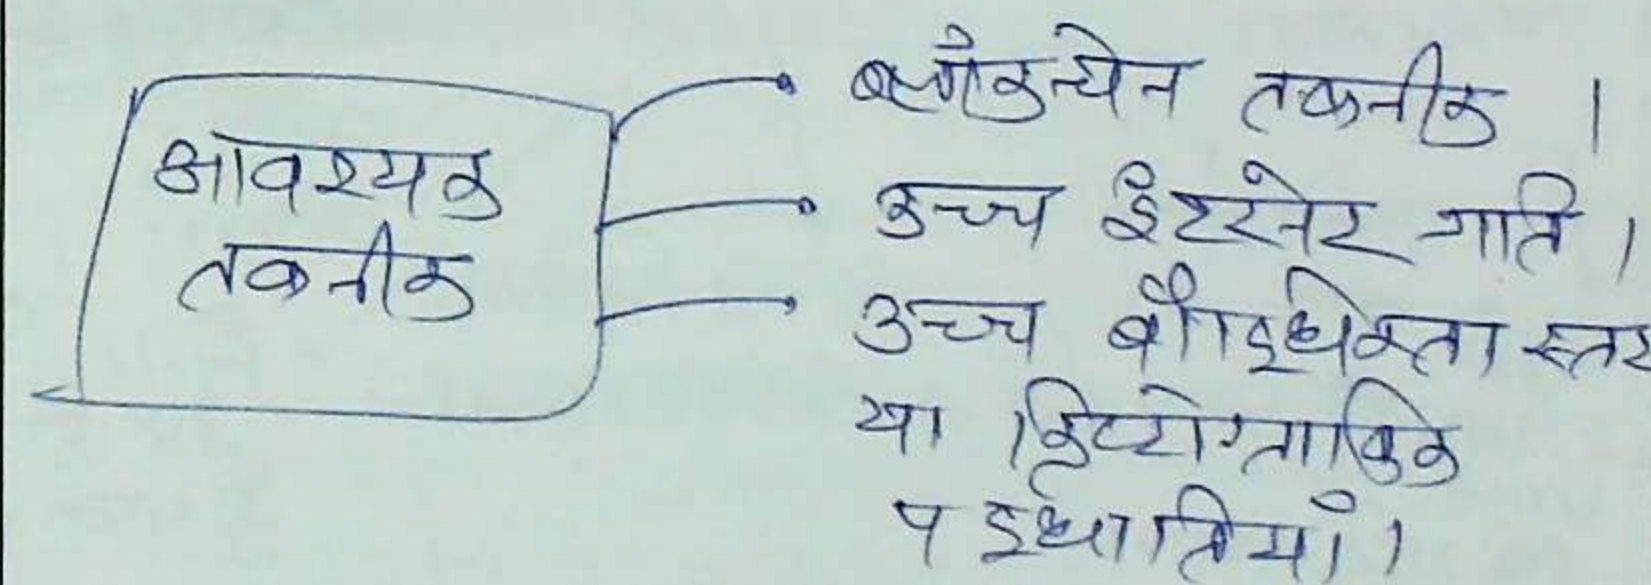 आवश्यक
तकनीक
ब्लॉकचेन तकनीक ।
उच्च इंटरनेट गति ।
उच्च बौद्धिकता स्तर
या क्रिप्टोग्राफिक
पद्धतियाँ ।